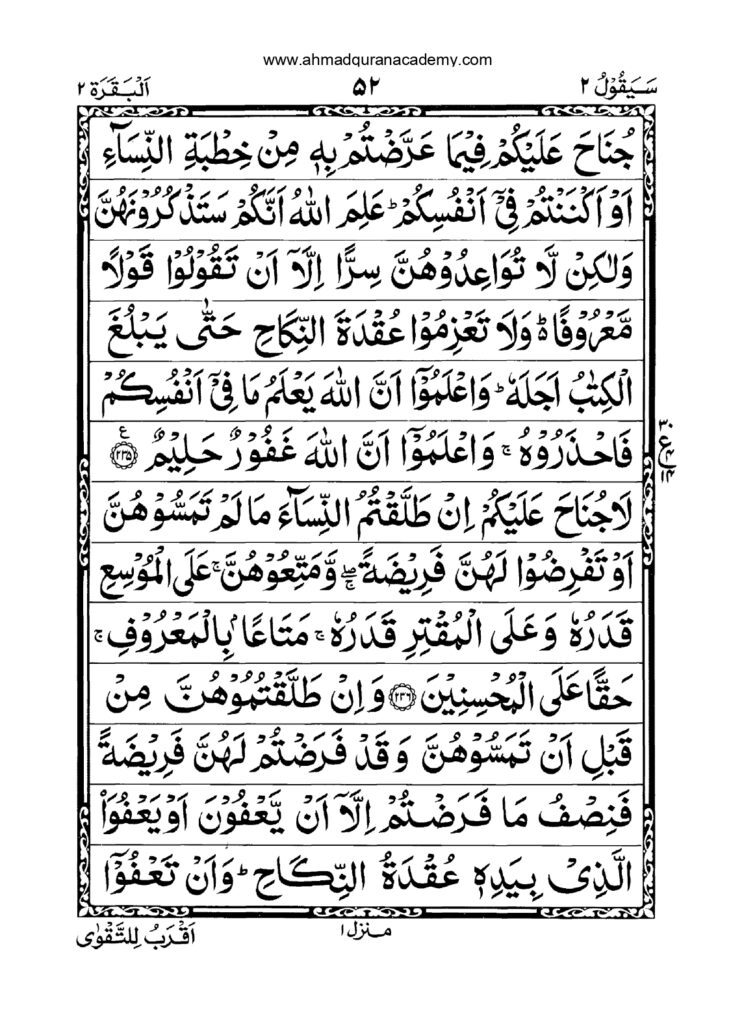 www.ahmadquranacademy.com
سَيَقُوْلُ ٢ ۵۲ اَلْبَقَرَة ٢
جُنَاحَ عَلَيْكُمْ فِيْمَا عَرَّضْتُمْ بِهٖ مِنْ خِطْبَةِ النِّسَآءِ
اَوْ اَكْنَنْتُمْ فِيْٓ اَنْفُسِكُمْ ؕ عَلِمَ اللّٰهُ اَنَّكُمْ سَتَذْكُرُوْنَهُنَّ
وَلٰكِنْ لَّا تُوَاعِدُوْهُنَّ سِرًّا اِلَّآ اَنْ تَقُوْلُوْا قَوْلًا
مَّعْرُوْفًا ؕ۬ وَلَا تَعْزِمُوْا عُقْدَةَ النِّكَاحِ حَتّٰى يَبْلُغَ
الْكِتٰبُ اَجَلَهٗ ؕ وَاعْلَمُوْٓا اَنَّ اللّٰهَ يَعْلَمُ مَا فِيْٓ اَنْفُسِكُمْ
فَاحْذَرُوْهُ ۚ وَاعْلَمُوْٓا اَنَّ اللّٰهَ غَفُوْرٌ حَلِيْمٌ ع ﴿٢٣٥﴾
٣٠ ع ١٤
لَاجُنَاحَ عَلَيْكُمْ اِنْ طَلَّقْتُمُ النِّسَآءَ مَا لَمْ تَمَسُّوْهُنَّ
اَوْ تَفْرِضُوْا لَهُنَّ فَرِيْضَةً ۖۚ وَّمَتِّعُوْهُنَّ ۚ عَلَى الْمُوْسِعِ
قَدَرُهٗ وَعَلَى الْمُقْتِرِ قَدَرُهٗ ۚ مَتَاعًاۢ بِالْمَعْرُوْفِ ۚ
حَقًّا عَلَى الْمُحْسِنِيْنَ ﴿٢٣٦﴾ وَاِنْ طَلَّقْتُمُوْهُنَّ مِنْ
قَبْلِ اَنْ تَمَسُّوْهُنَّ وَقَدْ فَرَضْتُمْ لَهُنَّ فَرِيْضَةً
فَنِصْفُ مَا فَرَضْتُمْ اِلَّآ اَنْ يَّعْفُوْنَ اَوْ يَعْفُوَا
الَّذِيْ بِيَدِهٖ عُقْدَةُ النِّكَاحِ ؕ وَاَنْ تَعْفُوْٓا
منزل ١
اَقْرَبُ لِلتَّقْوٰى